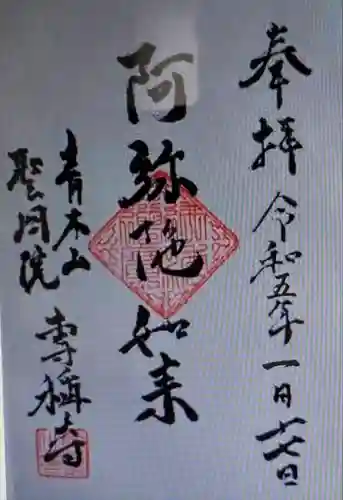 奉拝 令和五年一月十七日
阿弥陀如来
青木山
聖月院
専称寺